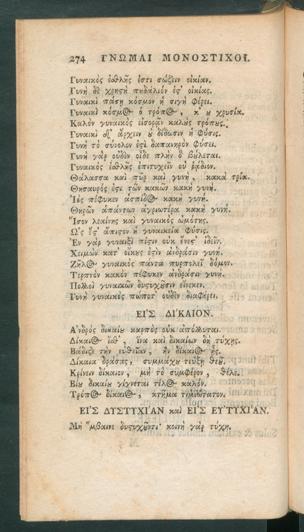 274 ΓΝΩΜΑΙ ΜΟΝΟΣΤΙΧΟΙ.
Γυναικὸς ἐσθλῆς ἐστι σώζειν οἰκίαν.
Γυνὴ δὲ χρηστὴ πηδάλιόν ἐς' οἰκίας.
Γυναικὶ πάσῃ κόσμον ἡ σιγὴ φέρει.
Γυναικὶ κόσμΘ ὁ τρόπΘ, κ' ȣ χρυσία.
Καλὸν γυναικὸς εἰσορᾶν καλȣ̀ς τρόπȣς.
Γυναικὶ δ' ἄρχειν ȣ̓ δίδωσιν ἡ Φύσις.
Γυνὴ τὸ σύνολον ἐςὶ δαπανηρὸν Φύσει.
Γυνὴ γὰρ ȣ̓δὲν οἶδε πλὴν ὃ βȣ́λεται.
Γυναικὸς ἐσθλῆς ἐπιτυχεῖν ȣ̓ ῥᾴδιον.
Θάλασσα καὶ πῦρ καὶ γυνὴ, κακὰ τρία.
Θησαυρός ἐςι τῶν κακῶν κακὴ γυνή.
Ἰὸς πέφυκεν ἀσπίδΘ κακὴ γυνή.
Θηρῶν ἁπάντων ἀγριωτέρα κακὴ γυνή.
Ἴσον λεαίνης καὶ γυναικὸς ὠμότης.
Ὡς ἔς' ἄπιςον ἡ γυναικεία Φύσις.
Ἓν γὰρ γυναιξὶ πίςιν ȣ̓κ ἔνες' ἰδεῖν.
Χειμὼν κατ' οἴκȣς ἐςὶν ἀνδράσιν γυνή.
ΖῆλΘ γυναικὸς πάντα πυρπολεῖ δόμον.
Τερπνὸν κακὸν πέφυκεν ἀνδράσιν γυνή.
Πολλοὶ γυναικῶν δυςυχȣ͂σιν εἵνεκεν.
Γυνὴ γυναικὸς πώποτ' ȣ̓δὲν διαφέρει.
ΕΙΣ ΔΙΚΑΙΟΝ.
Ἀνδρὸς δικαίȣ καρπὸς ȣ̓κ ἀπόλλυται.
ΔίκαιΘ ἴσθ', ἵνα καὶ δικαίων δὴ τύχῃς.
Βάδιζε τὴν εὐθεῖαν, ἵν' δίκαιΘ ᾖς.
Δίκαια δράσας, συμμάχȣ τεύξῃ Θεȣ͂.
Κρίνειν δίκαιον, μὴ τὸ συμφέρον, θέλε.
Βίȣ δικαίȣ γίγνεται τέλΘ καλόν.
ΤρόπΘ δίκαιΘ, κτῆμα τιμιώτατον.
ΕΙΣ ΔΥΣΤΥΧΙΑΝ καὶ ΕΙΣ ΕΥΤΥΧΙΑΝ.
Μὴ 'μβαινε δυςυχȣ͂ντι· κοινὴ γὰρ τύχη.